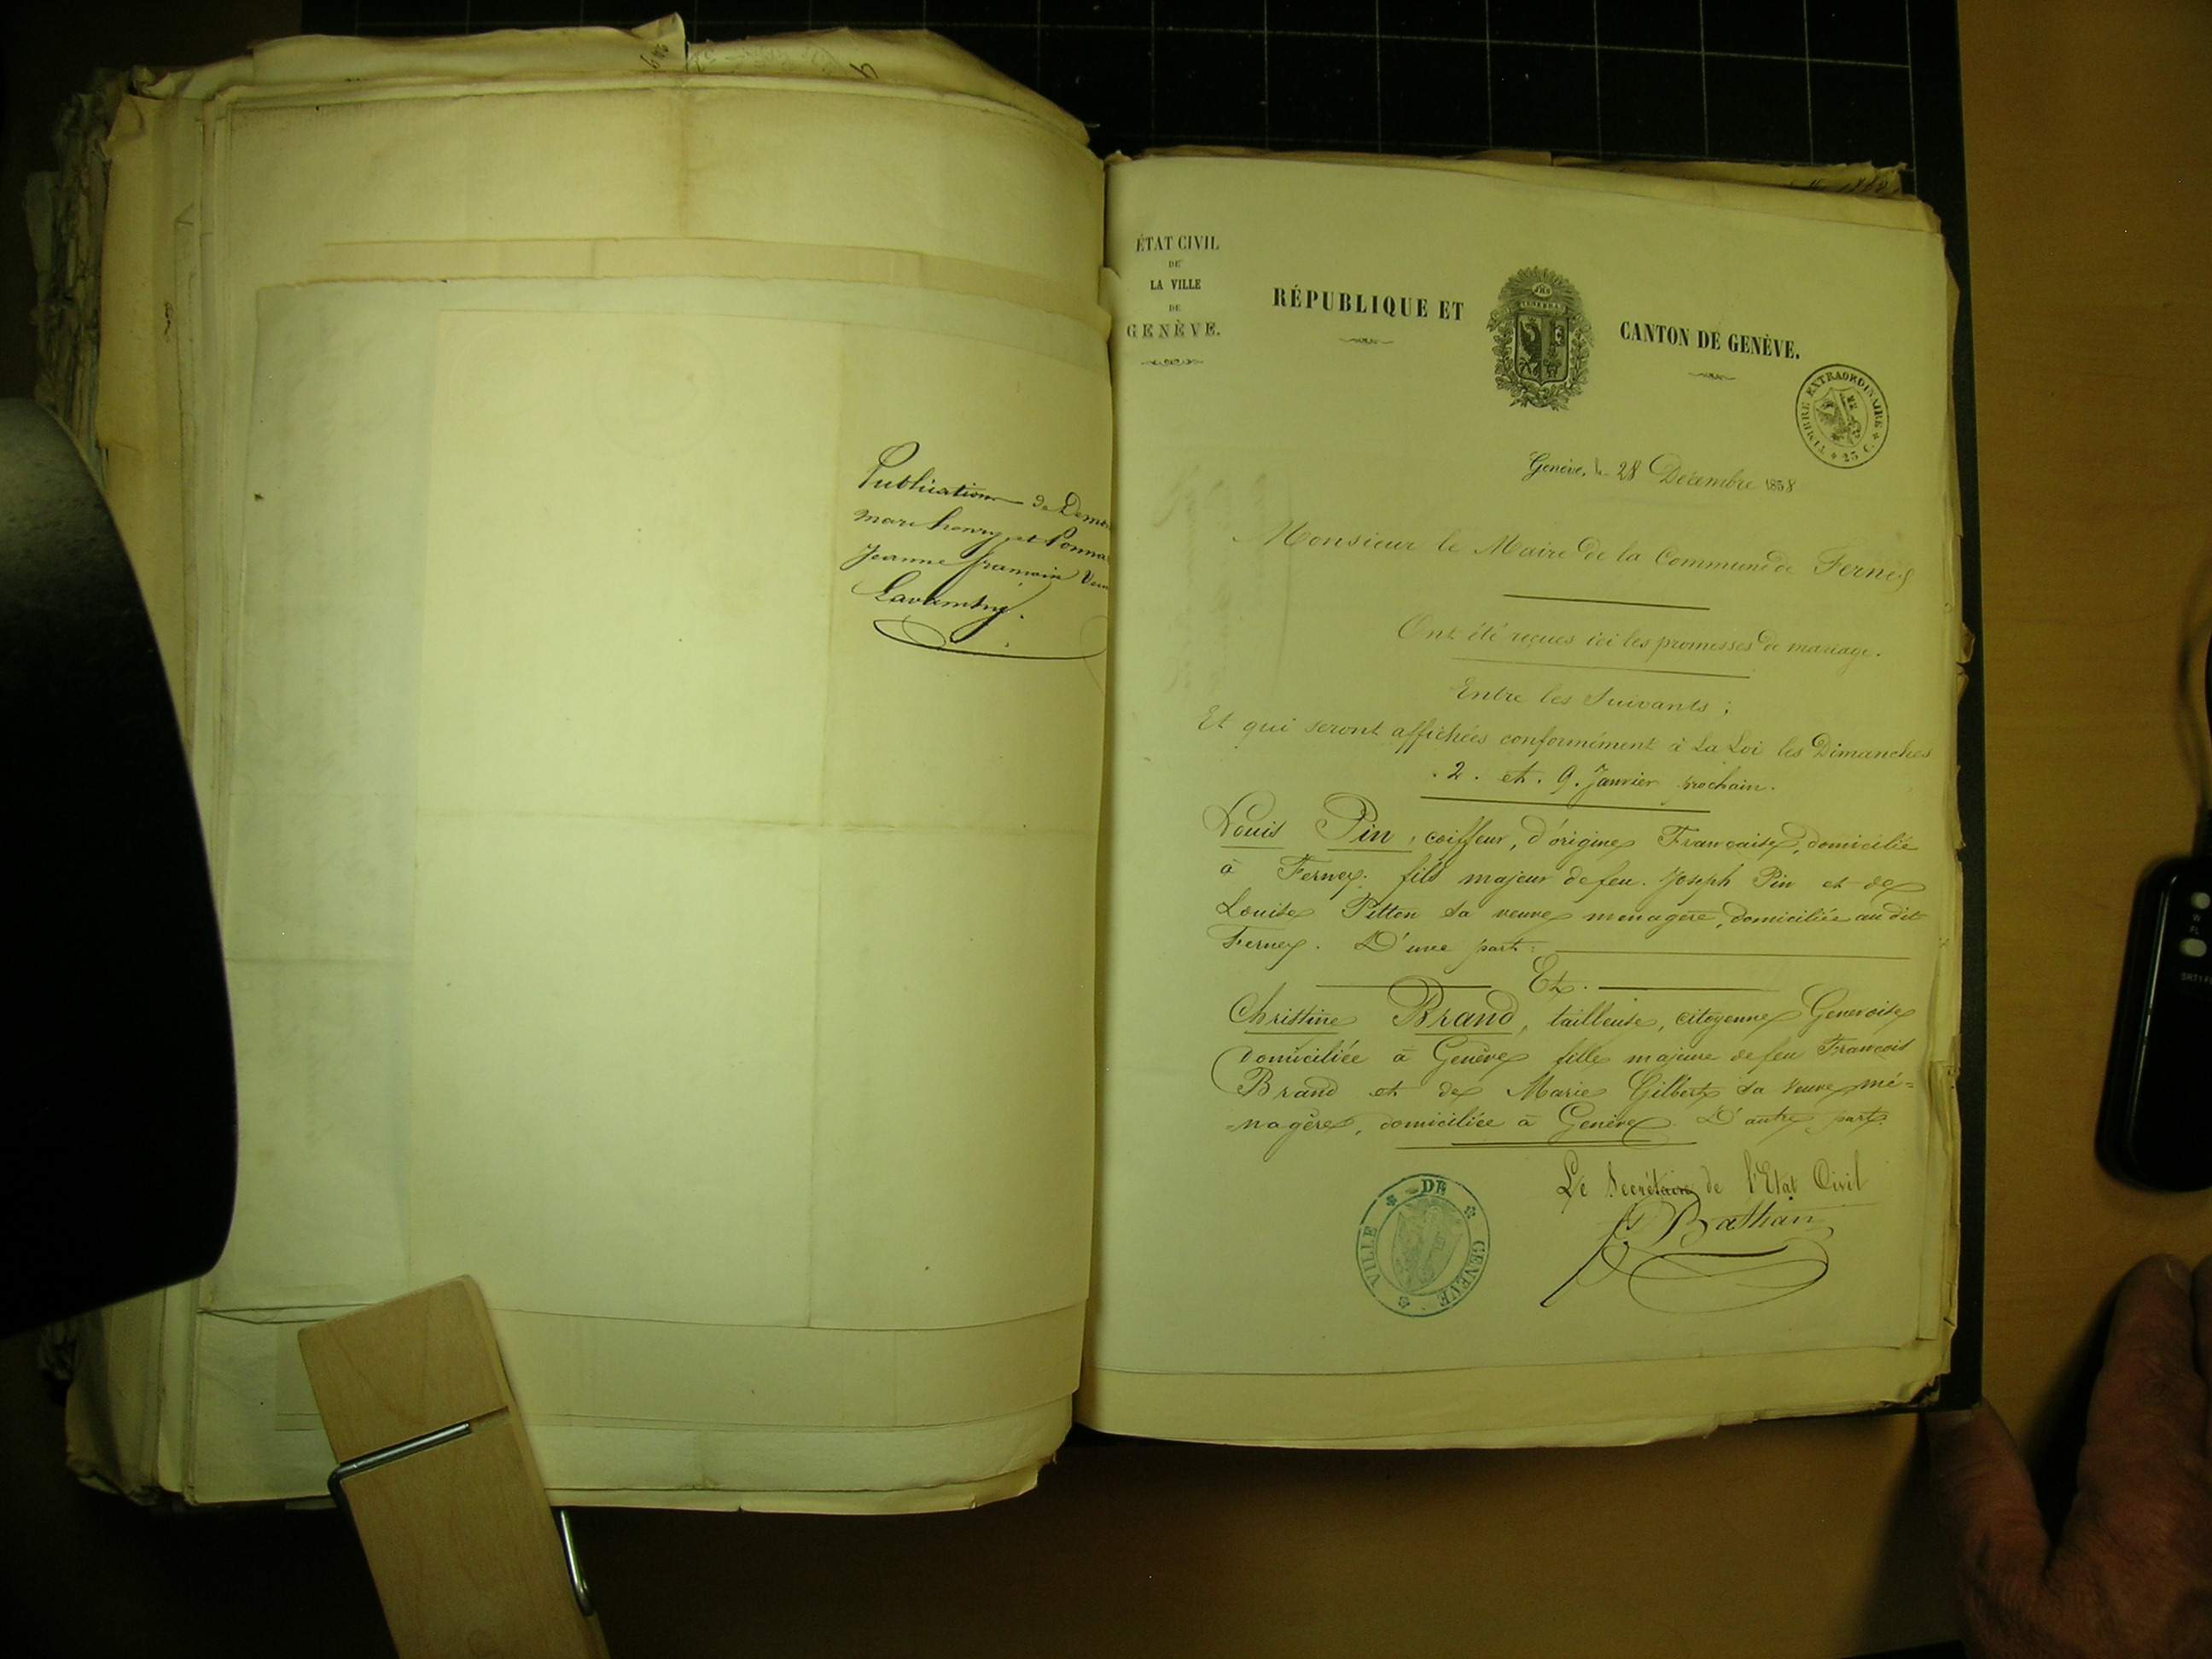 Publication de
marc henry et
Jeanne
ÉTAT CIVIL
DE
LA VILLE
DE
GENÈVE.
RÉPUBLIQUE ET
CANTON DE GENÈVE.
TIMBRE EXTRAORDINAIRE
25 C.
Genève, le 28 Décembre 1858
Monsieur le Maire de la Commune de Ferney
Ont été reçues ici les promesses de mariage.
Entre les Suivants ;
Et qui seront affichées conformément à La Loi les Dimanches
. 2 . et . 9 . Janvier prochain.
Louis Pin, coiffeur, d'origine Française, domicilié
à Ferney. fils majeur de feu. Joseph Pin et de
Louise Pitton sa veuve menagère, domiciliée au dit
Ferney. D'une part :
Et.
Christine Brand, tailleuse, citoyenne Genevoise
domiciliée à Genève fille majeure de feu François
Brand et de Marie Gilbert sa veuve mé=
=nagère, domiciliée à Genève. D'autre part.
Le Secrétaire de l'Etat Civil
VILLE DE GENÈVE